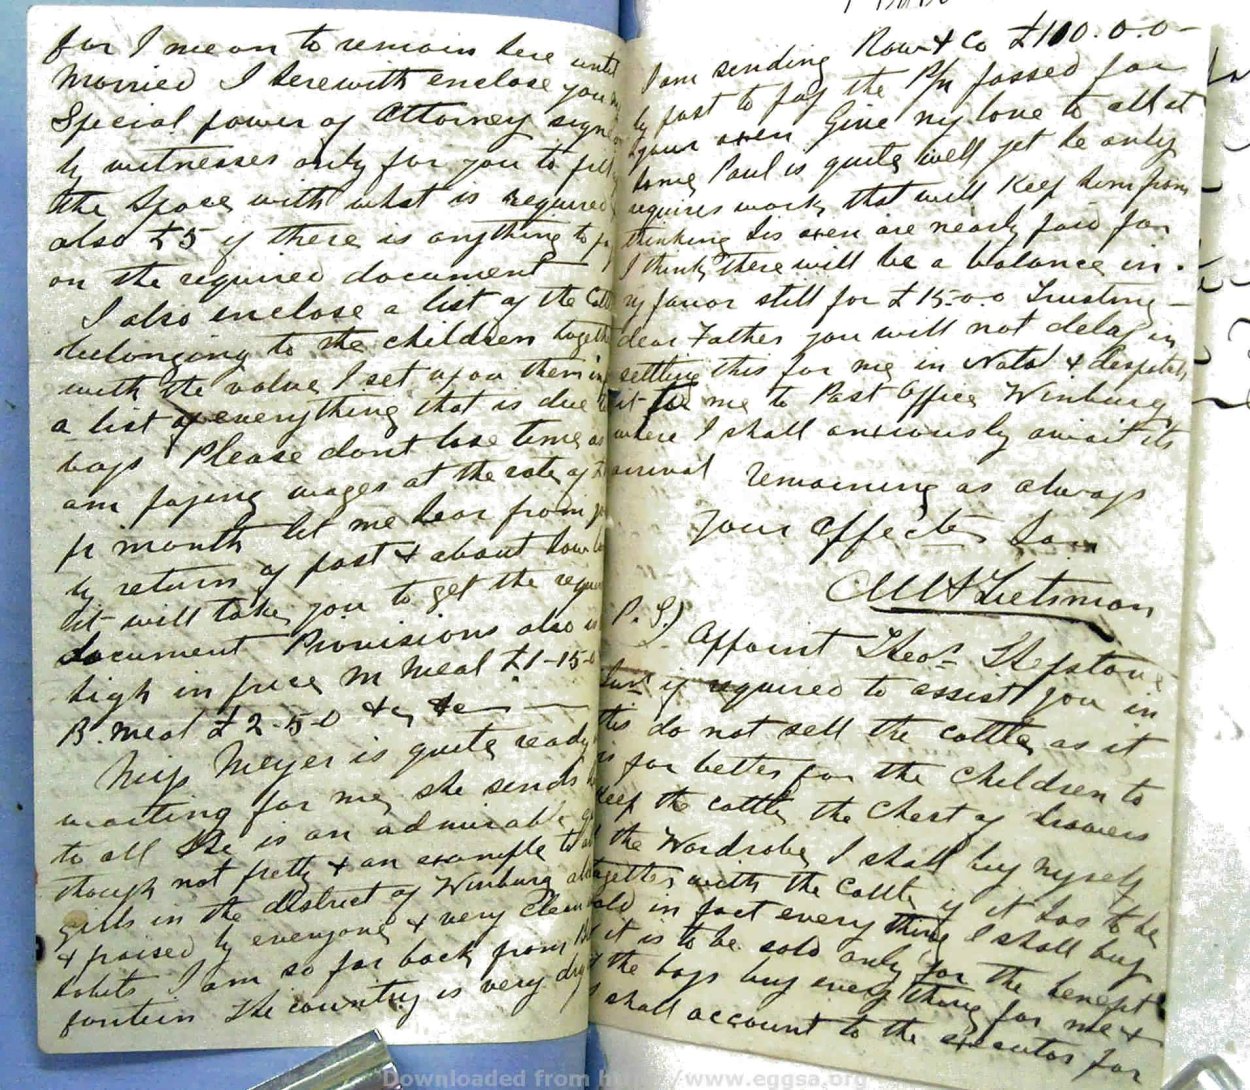 for I mean to remain here until
Married I herewith enclose you my
Special power of Attorney signed
by witnesses only for you to fill
the Space with what is required
also £5 if there is anything to pay
on the required document
I also enclose a list of the
belonging to the children together
with the value I set upon them
a list of everything that is due
boys Please dont lose time as
am paying wages at the rate of
pr month let me hear from
by return of post & about how
it will take you to get the
document Provisions also is
high in price M Meal £1-15-0
B. Meal £2-5-0
Miss Meyer is quite ready
waiting for me she sends
to all She is an admirable
though not pretty & an example to all
girls in the district of Winburg
& praised by everyone & very clean
habits I am so far back from
fontein The country is very dry
I am sending & Co £100.0.0-
by post to pay the P/N passed for
your oxen Give my love to all at
home Paul is quite well yet he only
requires work that will keep him from
thinking his oxen are nearly paid for
I think there will be a balance in
my favor still for £15-0.0 Trusting
dear Father you will not delay in
settling this for me in Natal & despatch
it for me to Post Office Winburg
where I shall anxiously await its
arrival remaining as always
Your affecte Son
Lietsman
P.S.) I appoint Theos. Shepstone
if required to assist you in
this do not sell the cattle as it
is far better for the children to
keep the cattle the Chest of drawers
the Wardrobe I shall buy myself
together with the Cattle if it has to be
sold in fact every thing I shall buy
it is to be sold only for the benefit
the boys buy every thing for me &
I shall account to the executor for
www.eggsa.org
Downloaded from